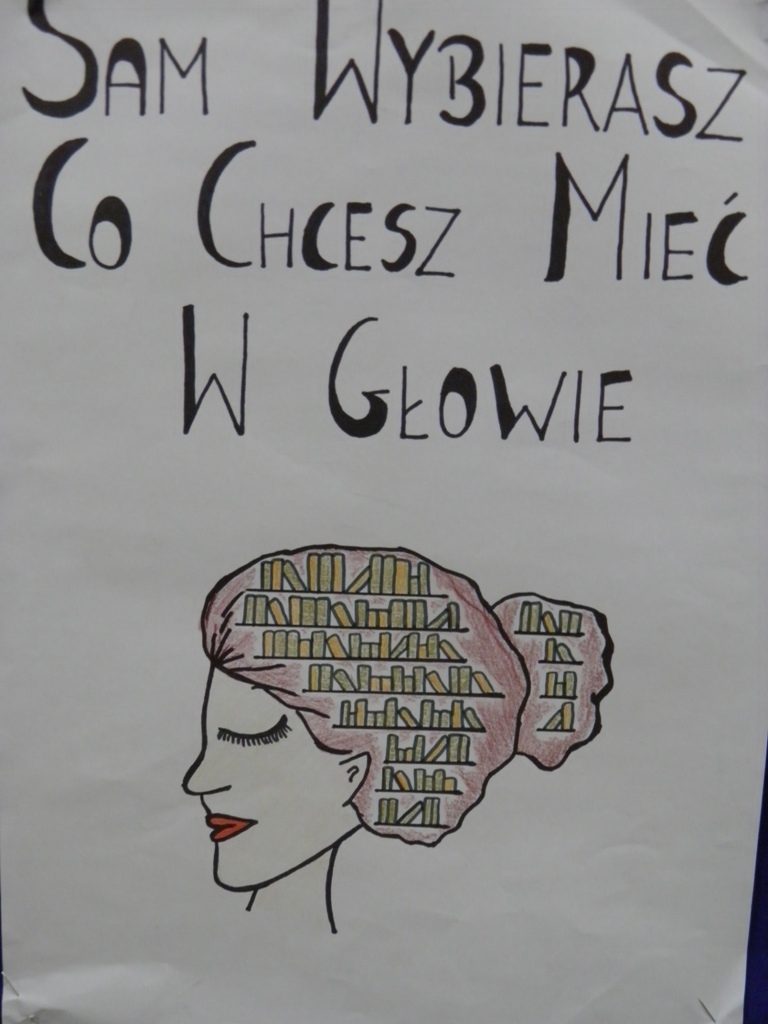 SAM WYBIERASZ
CO CHCESZ MIEĆ
W GŁOWIE